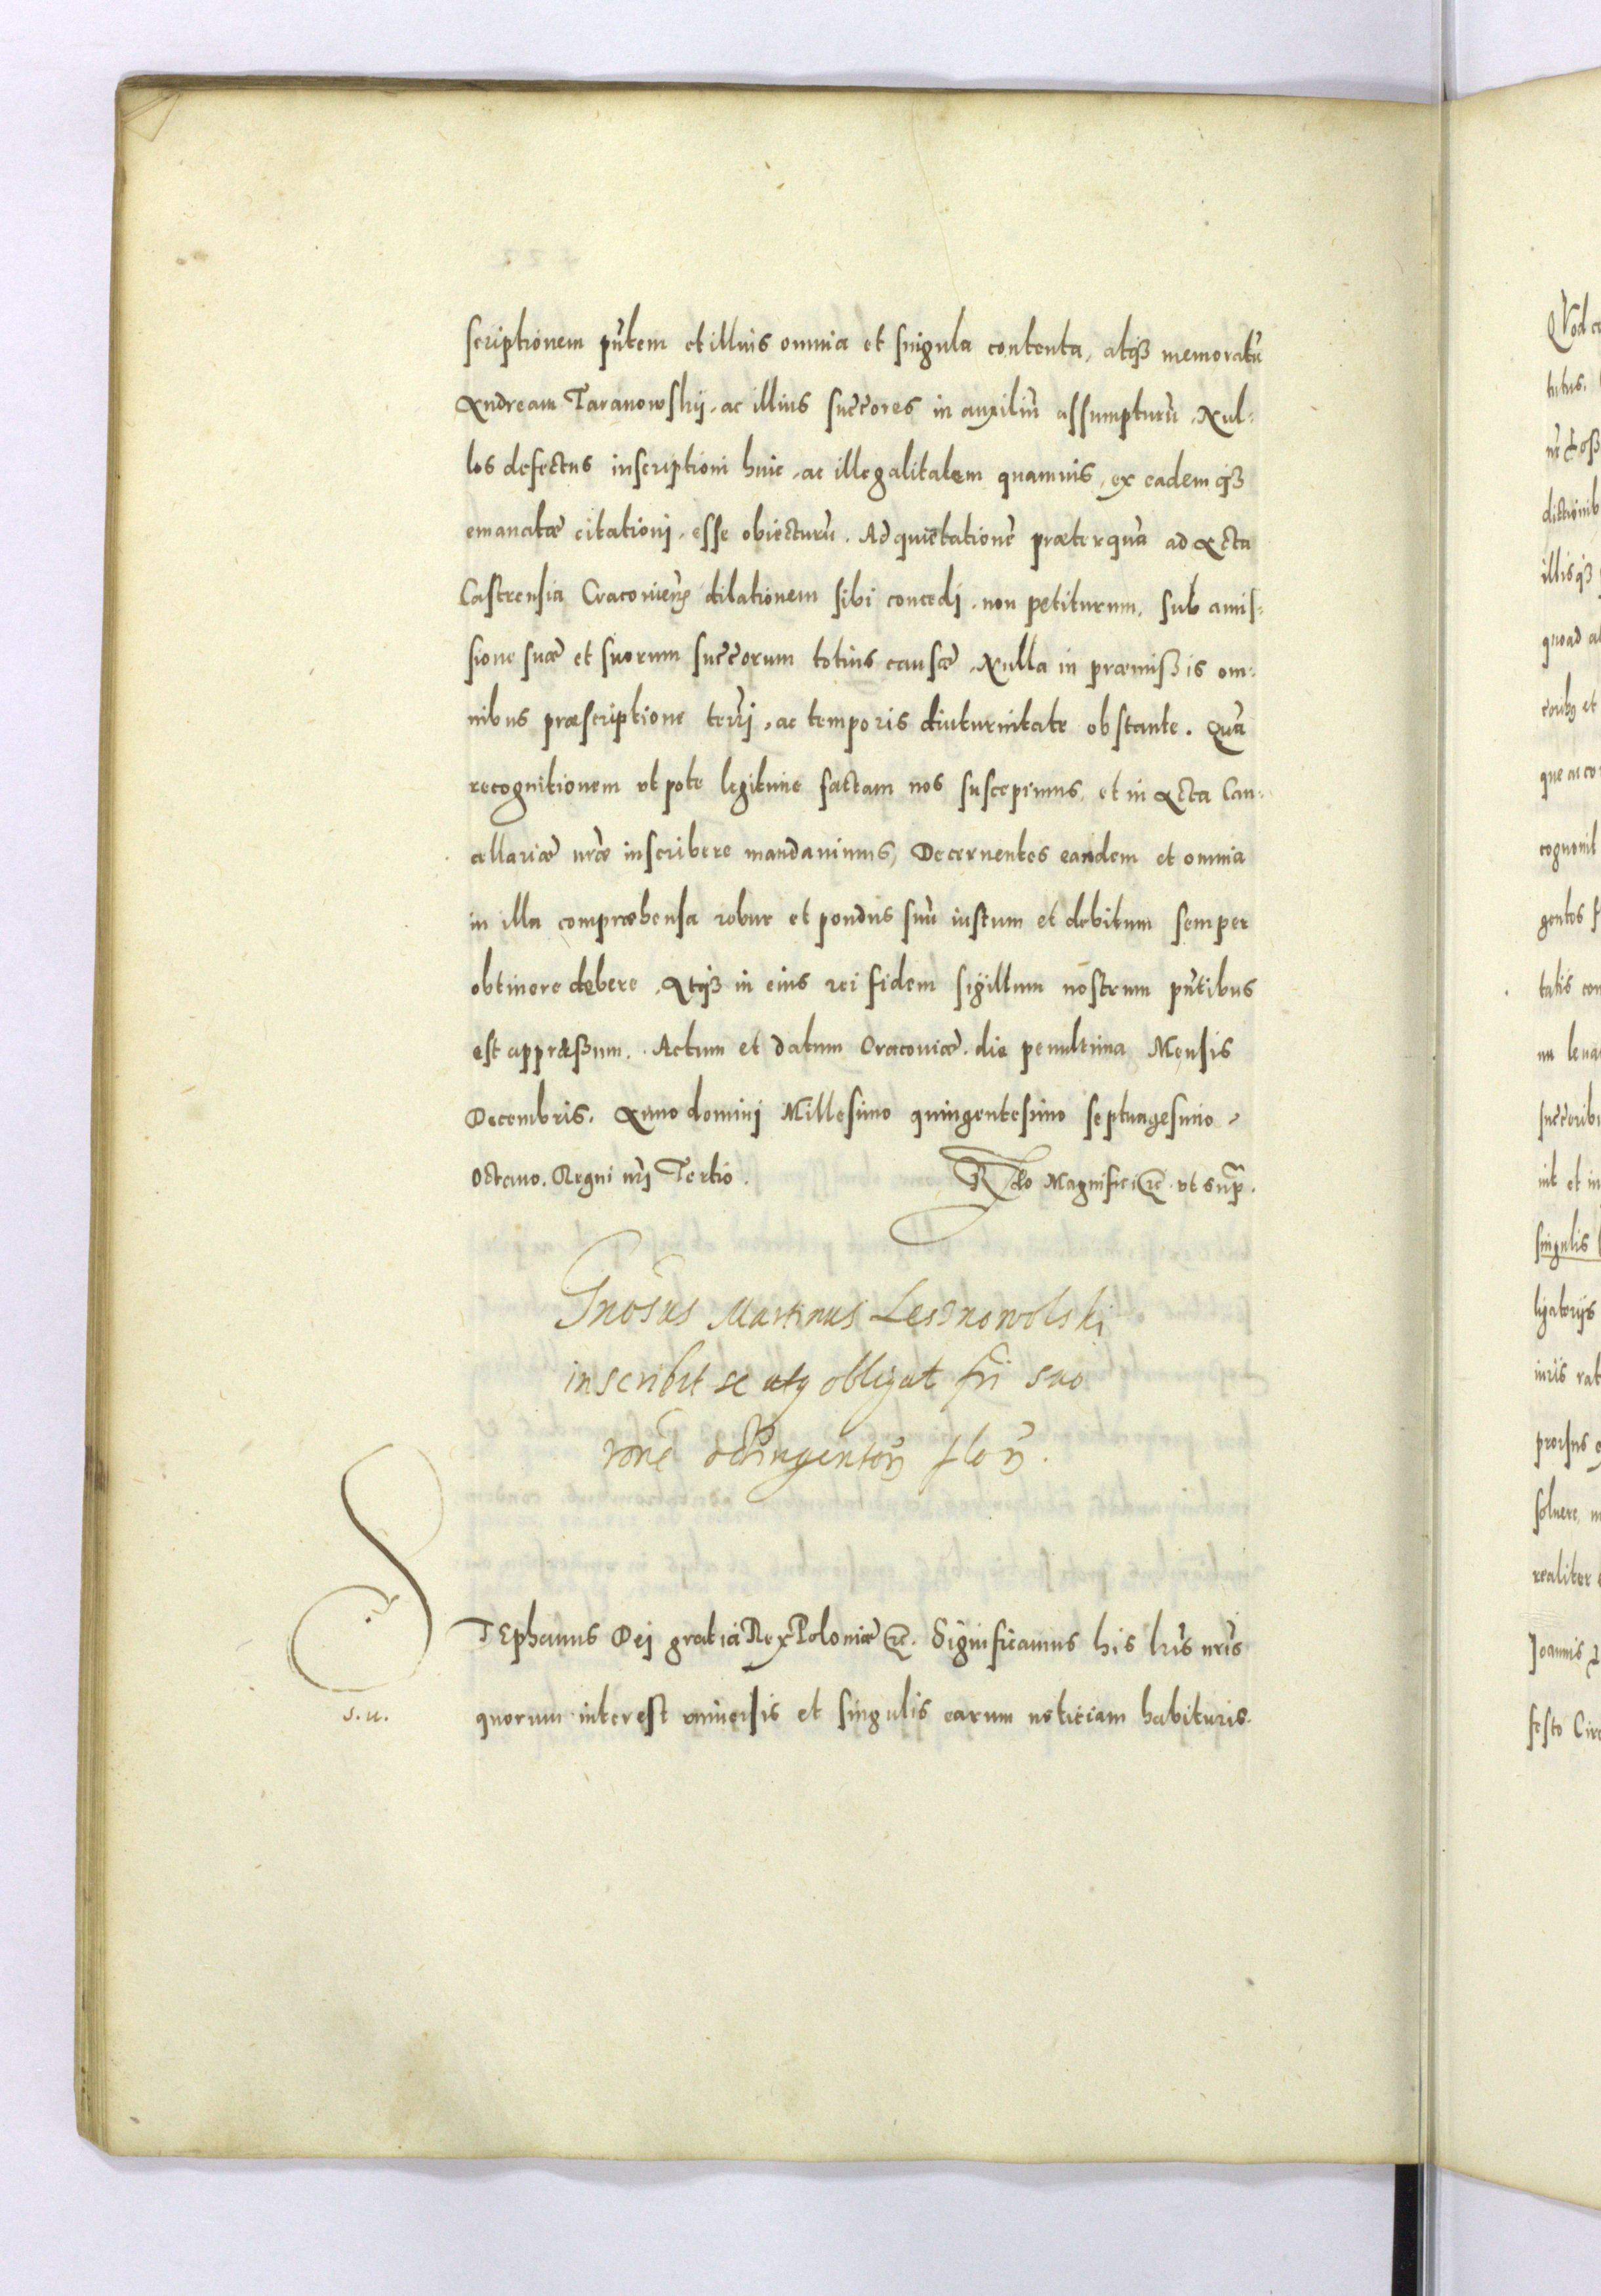 scriptionem pñtem et illius omnia et singula contenta, atqꝫ memoratũ
Andream Taranowskij, ac illius succ̃ores in auxiliũ assumpturũ, Nul-
los defectus inscriptioni huic, ac illegalitatem quamuis, ex eademqꝫ
emanatæ citationi, esse obiecturũ. Ad quietationẽ præterquã ad Acta
Castrensia Cracovieñ dilationem sibi concedi, non petiturum, sub amis-
sione suæ et suorum succ̃orum totius causæ, Nulla in præmißis om-
nibus præscriptione terr̃j, ac temporis diuturnitate obstante. Quã
recognitionem vt pote legitime factam nos suscepimus, et in Acta Can-
cellariæ nr̃æ inscribere mandauimus, Decernentes eandem et omnia
in illa compræhensa robur et pondus suũ iustum et debitum semper
obtinere debere, Atqꝫ in eius rei fidem sigillum nostrum pñtibus
est appræßum. Actum et datum Cracoviæ die penultima Mensis
Decembris. Anno dominj Millesimo quingentesimo septuagesimo
Octauo. Regni nr̃j Tertio. R̃do Magnifici &c. vt supr̃.
Gñosus Martinus Lesznowolski
inscribit se atqꝫ obligat fr̃i suo
rõne octingentoꝝ floꝝ.
STEphanus Dej gratia Rex Poloniæ &c. Significamus his lr̃is nr̃is
s.u.
quorum interest vniuersis et singulis earum noticiam habituris.